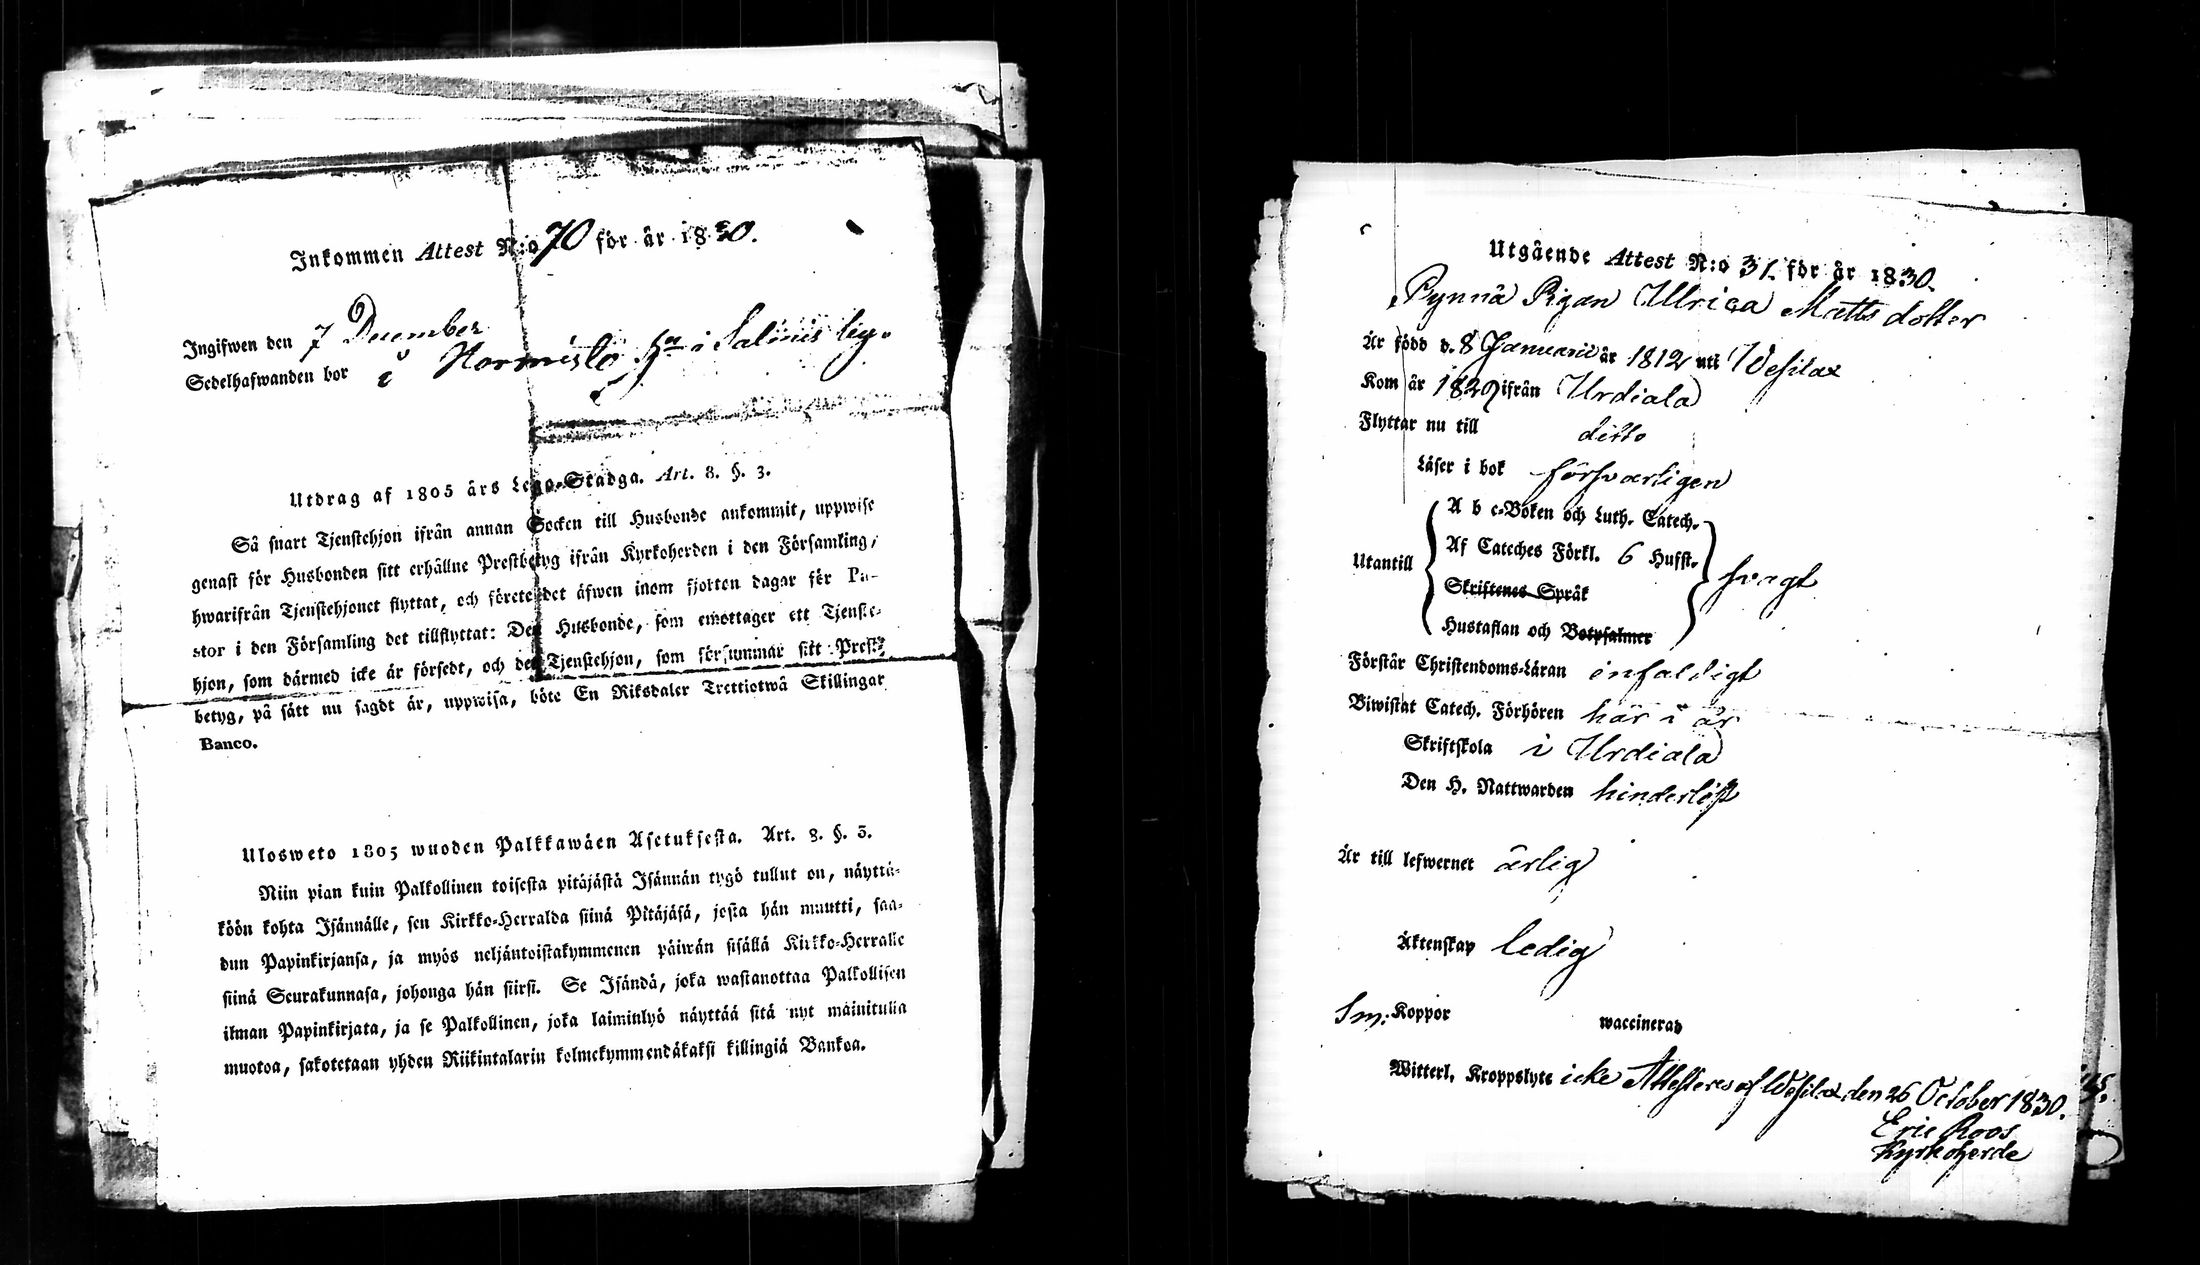 Inkommen Attest N:o 70 för år 1830.
Ingifwen den 7 December
Sedelhafwanden bor i Hormisto i Salmis
Utdrag af 1805 års Lego-Stadga. Art. 8. §. 3.
Så snart Tjenstehjon ifrån annan Socken till Husbonde ankommit, uppwise
genast för Husbonden sitt erhållne Prestbetyg ifrån Kyrkoherden i den Församling,
hwarifrån Tjenstehjonet flyttat, och förete det äfwen inom fjorton dagar för Pa-
stor i den Församling det tillflyttat: Den Husbonde, som emottager ett Tjenste-
hjon, som därmed icke är försedt, och det Tjenstehjon, som försummar sitt Prest-
betyg, på sätt nu sagdt är, uppwisa, böte En Riksdaler Trettiotwå Skillingar
Banco.
Ulosweto 1805 wuoden Palkkawäen Asetuksesta. Art. 8. §. 3.
Niin pian kuin Palkollinen toisesta pitäjästä Isännän tygö tullut on, näyttä-
köön kohta Isännälle, sen Kirkko-Herralda siinä Pitäjäsä, josta hän muutti, saa-
dun Papinkirjansa, ja myös neljäntoistakymmenen päiwän sisällä Kirkko-Herralle
siinä Seurakunnasa, johonga hän siirsi. Se Isändä, joka wastanottaa Palkollisen
ilman Papinkirjata, ja se Palkollinen, joka laiminlyö näyttää sitä nyt mainitulla
muotoa, sakotetaan yhden Riikintalarin kolmekymmendäkaksi killingiä Bankoa.
Utgående Attest N:o 31. för år 1830.
Pynnä Pigan Ulrica Matts dotter
Är född d. 8 Januarii år 1812 uti Wesilax
Kom år 1829 ifrån Urdiala
Flyttar nu till ditto
Läser i bok försvarligen
A b c-Boken och Luth. Catech.
Utantill Af Cateches Förkl. 6 Hufst. svagt
Skriftenes Språk
Hustaflan och Botpsalmer
Förstår Christendoms-Läran enfaldigt
Biwistat Catech. Förhören här i år
Skriftskola i Urdiala
Den H. Nattwarden hinderlöst
Är till lefwernet ärlig
Äktenskap ledig
Sm: Koppor waccinerad
Witterl. Kroppslyte icke Attesteres af Wesilax den 26 October 1830.
Eric Roos
Kyrkoherde